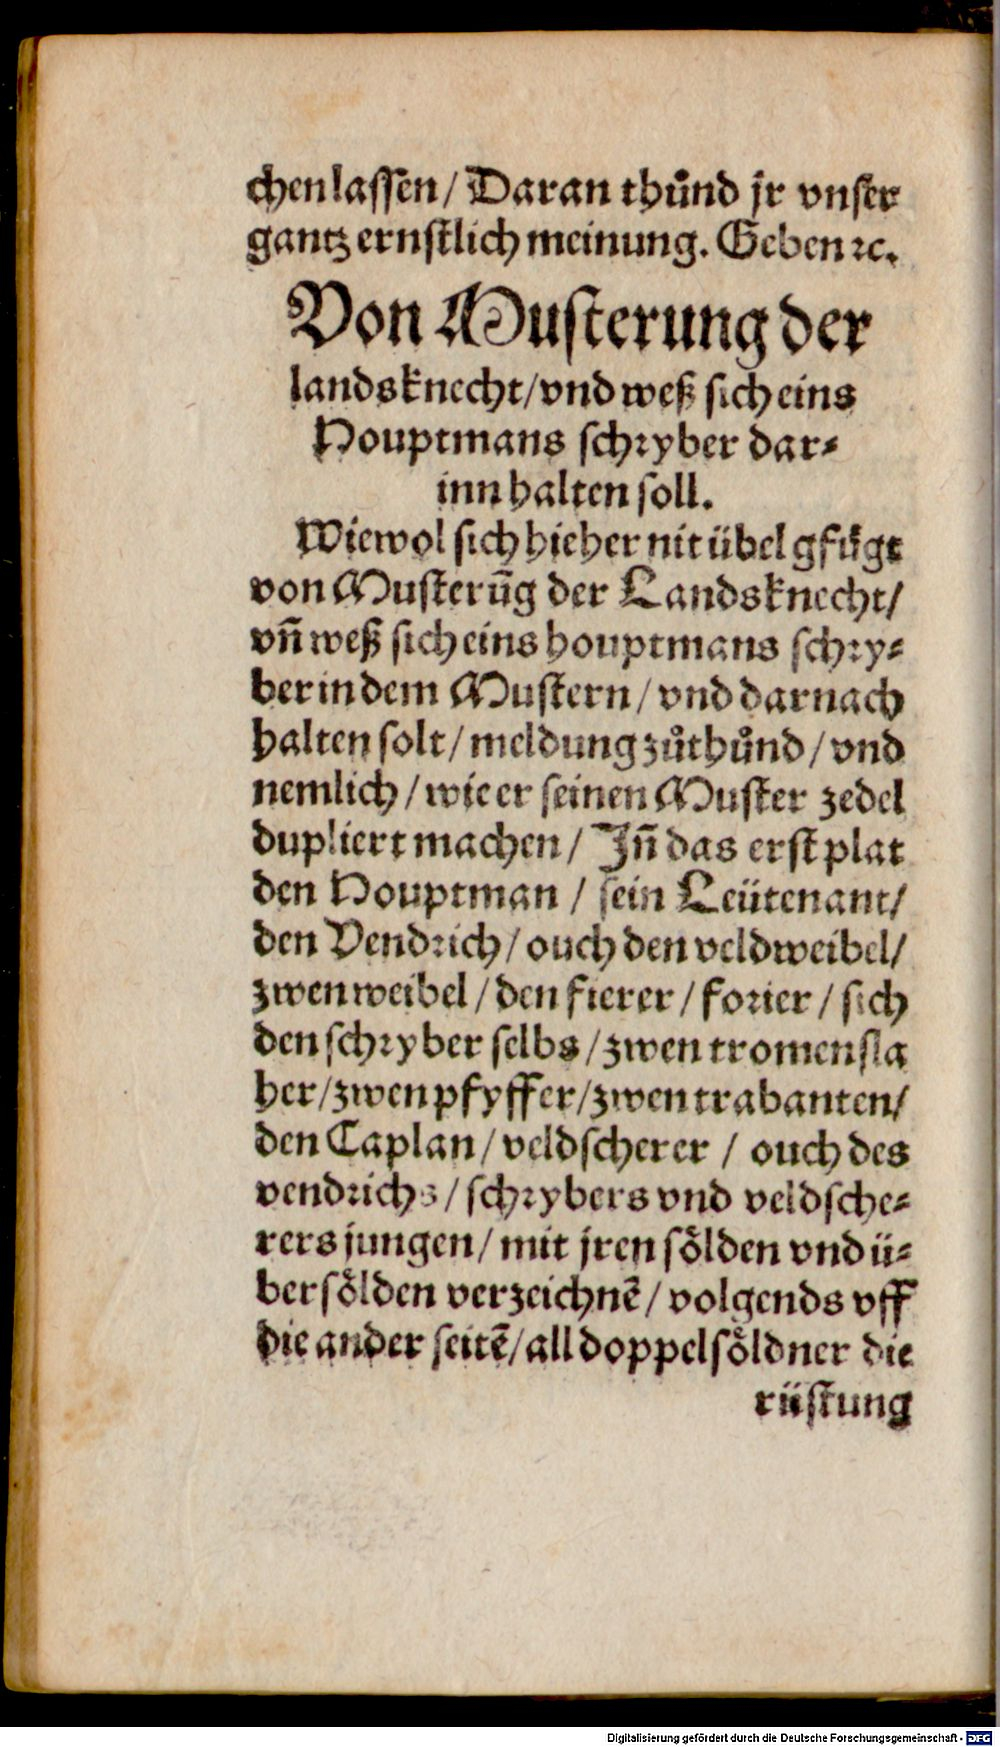 chen lassen / Daran thůnd jr vnser
gantz ernstlich meinung. Geben ꝛc.
Von Musterung der
landsknecht / vnd weß sich eins
Houptmans schryber dar⸗
inn halten soll.
Wiewol sich hieher nit übel gfügt
von Musterūg der Landsknecht /
vn̄ weß sich eins houptmans schry⸗
ber in dem Mustern / vnd darnach
halten solt / meldung zůthůnd / vnd
nemlich / wie er seinen Muster zedel
dupliert machen / Jn̄ das erst plat
den Houptman / sein Leütenant /
den Vendrich / ouch den veldweibel /
zwen weibel / den fierer / forier / sich
den schryber selbs / zwen tromensla
her / zwen pfyffer / zwen trabanten /
den Caplan / veldscherer / ouch des
vendrichs / schrybers vnd veldsche⸗
rers jungen / mit jren sölden vnd ü⸗
bersölden verzeichnē / volgends vff
die ander seitē / all doppelsöldner die
rüstung
Digitalisierung gefördert durch die Deutsche Forschungsgemeinschaft - DFG